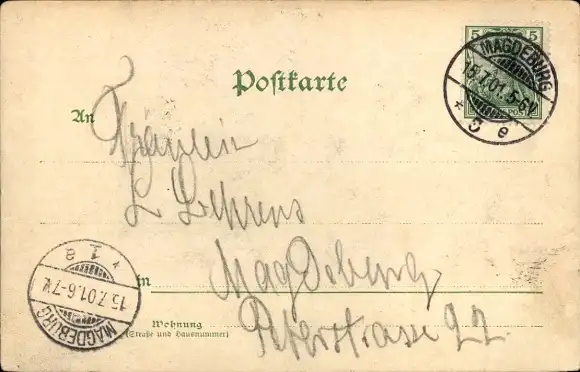 5 5
MAGDEBURG
15.7.01.5-6N.
* 3 e
Postkarte
An
Fräulein
L Behrens
in
Magdeburg
Wohnung
(Straße und Hausnummer)
Peterstrasse 22.
* 1 a
15.7.01.6-7N.
MAGDEBURG